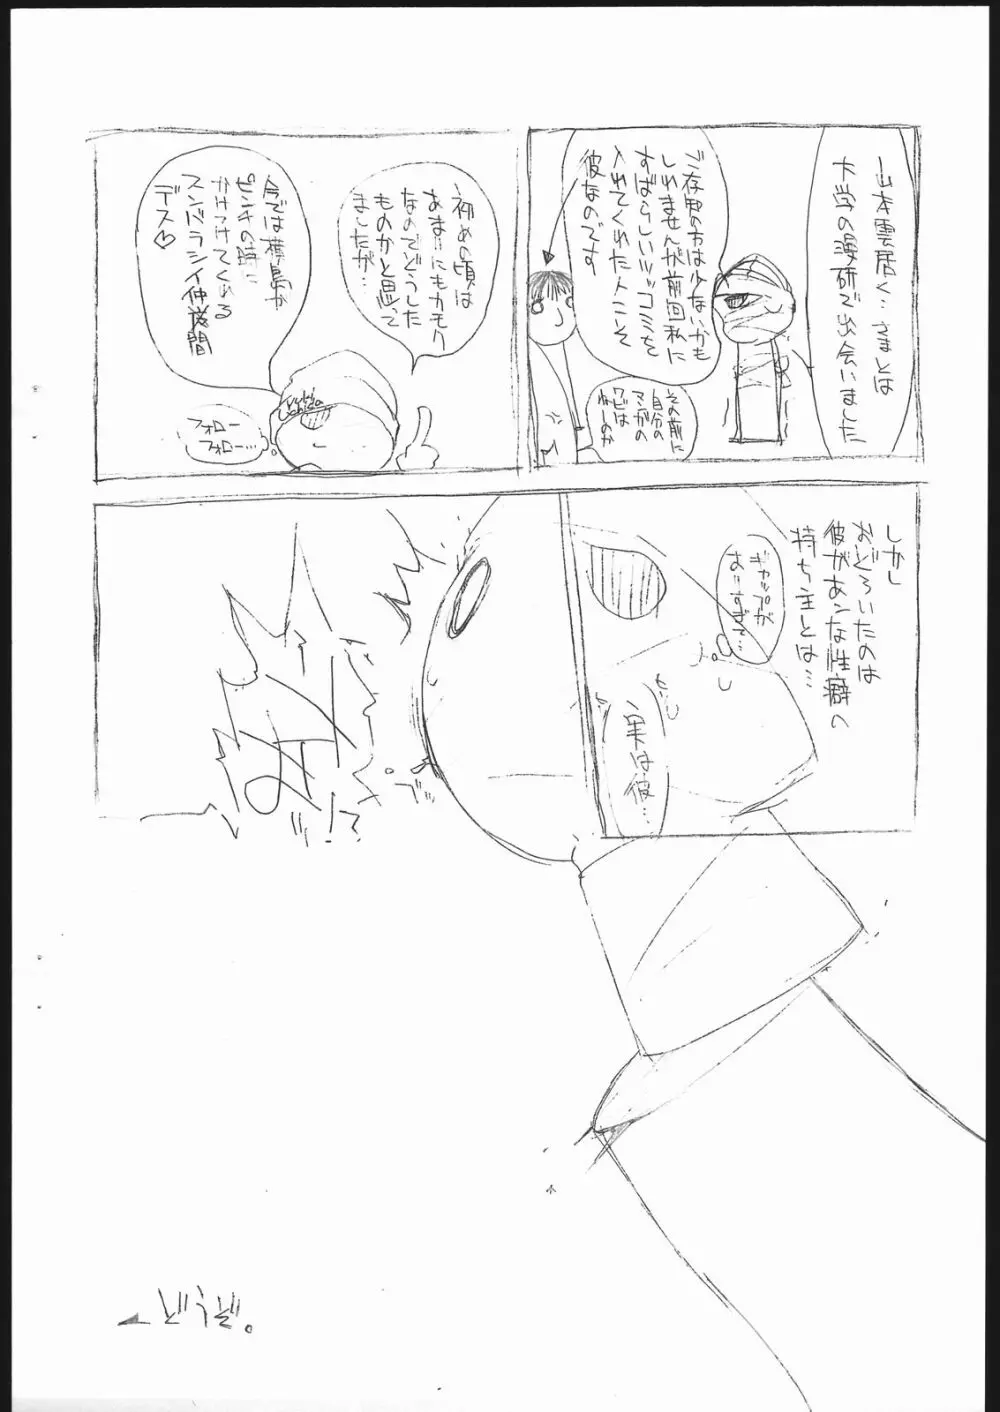 山本雲居く…さまとは
大学の漫研で出会いました
ご存知の方は少ないかも
しれませんが前回私に
すばらしいツッコミを
入れてくれた人こそ
彼なのです
その前に
自分の
マンガの
ワビは
ねーのか
初めの頃は
あまりにもカモク
なのでどうした
ものかと思って
ましたが…
今では横島が
ピンチの時に
かけつけてくれる
スンバラシイ仲間
デス♡
フォロー
フォロー…
Yukki
uchida
しかし
おどろいたのは
彼があんな性癖の
持ち主とは…
ギャップが
ありすぎて…
実は彼…
どうぞ。